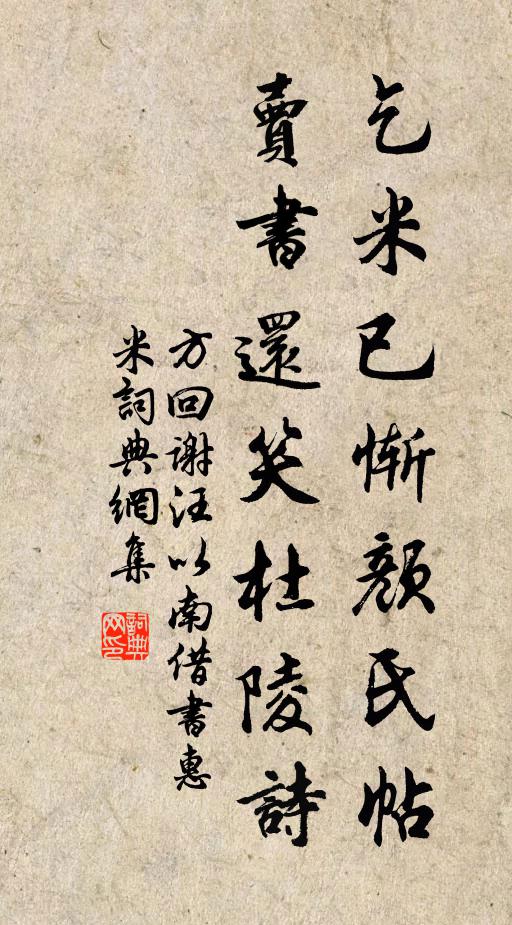 乞米已慚顔氏帖
賣書還笑杜陵詩
方回謝汪以南借書惠
米詞典網集
詞典
网印